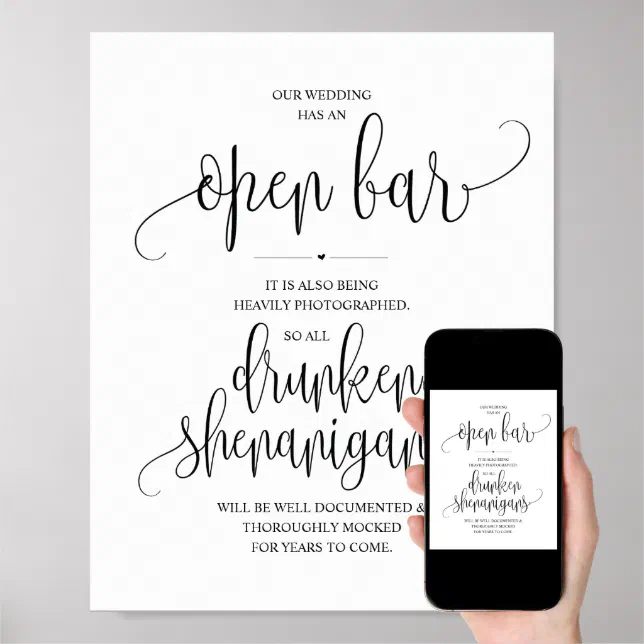 OUR WEDDING
HAS AN
open bar
IT IS ALSO BEING
HEAVILY PHOTOGRAPHED.
SO ALL
drunken
shenanigans
WILL BE WELL DOCUMENTED &
THOROUGHLY MOCKED
FOR YEARS TO COME.
OUR WEDDING
HAS AN
open bar
IT IS ALSO BEING
HEAVILY PHOTOGRAPHED.
SO ALL
drunken
shenanigans
WILL BE WELL DOCUMENTED &
THOROUGHLY MOCKED
FOR YEARS TO COME.